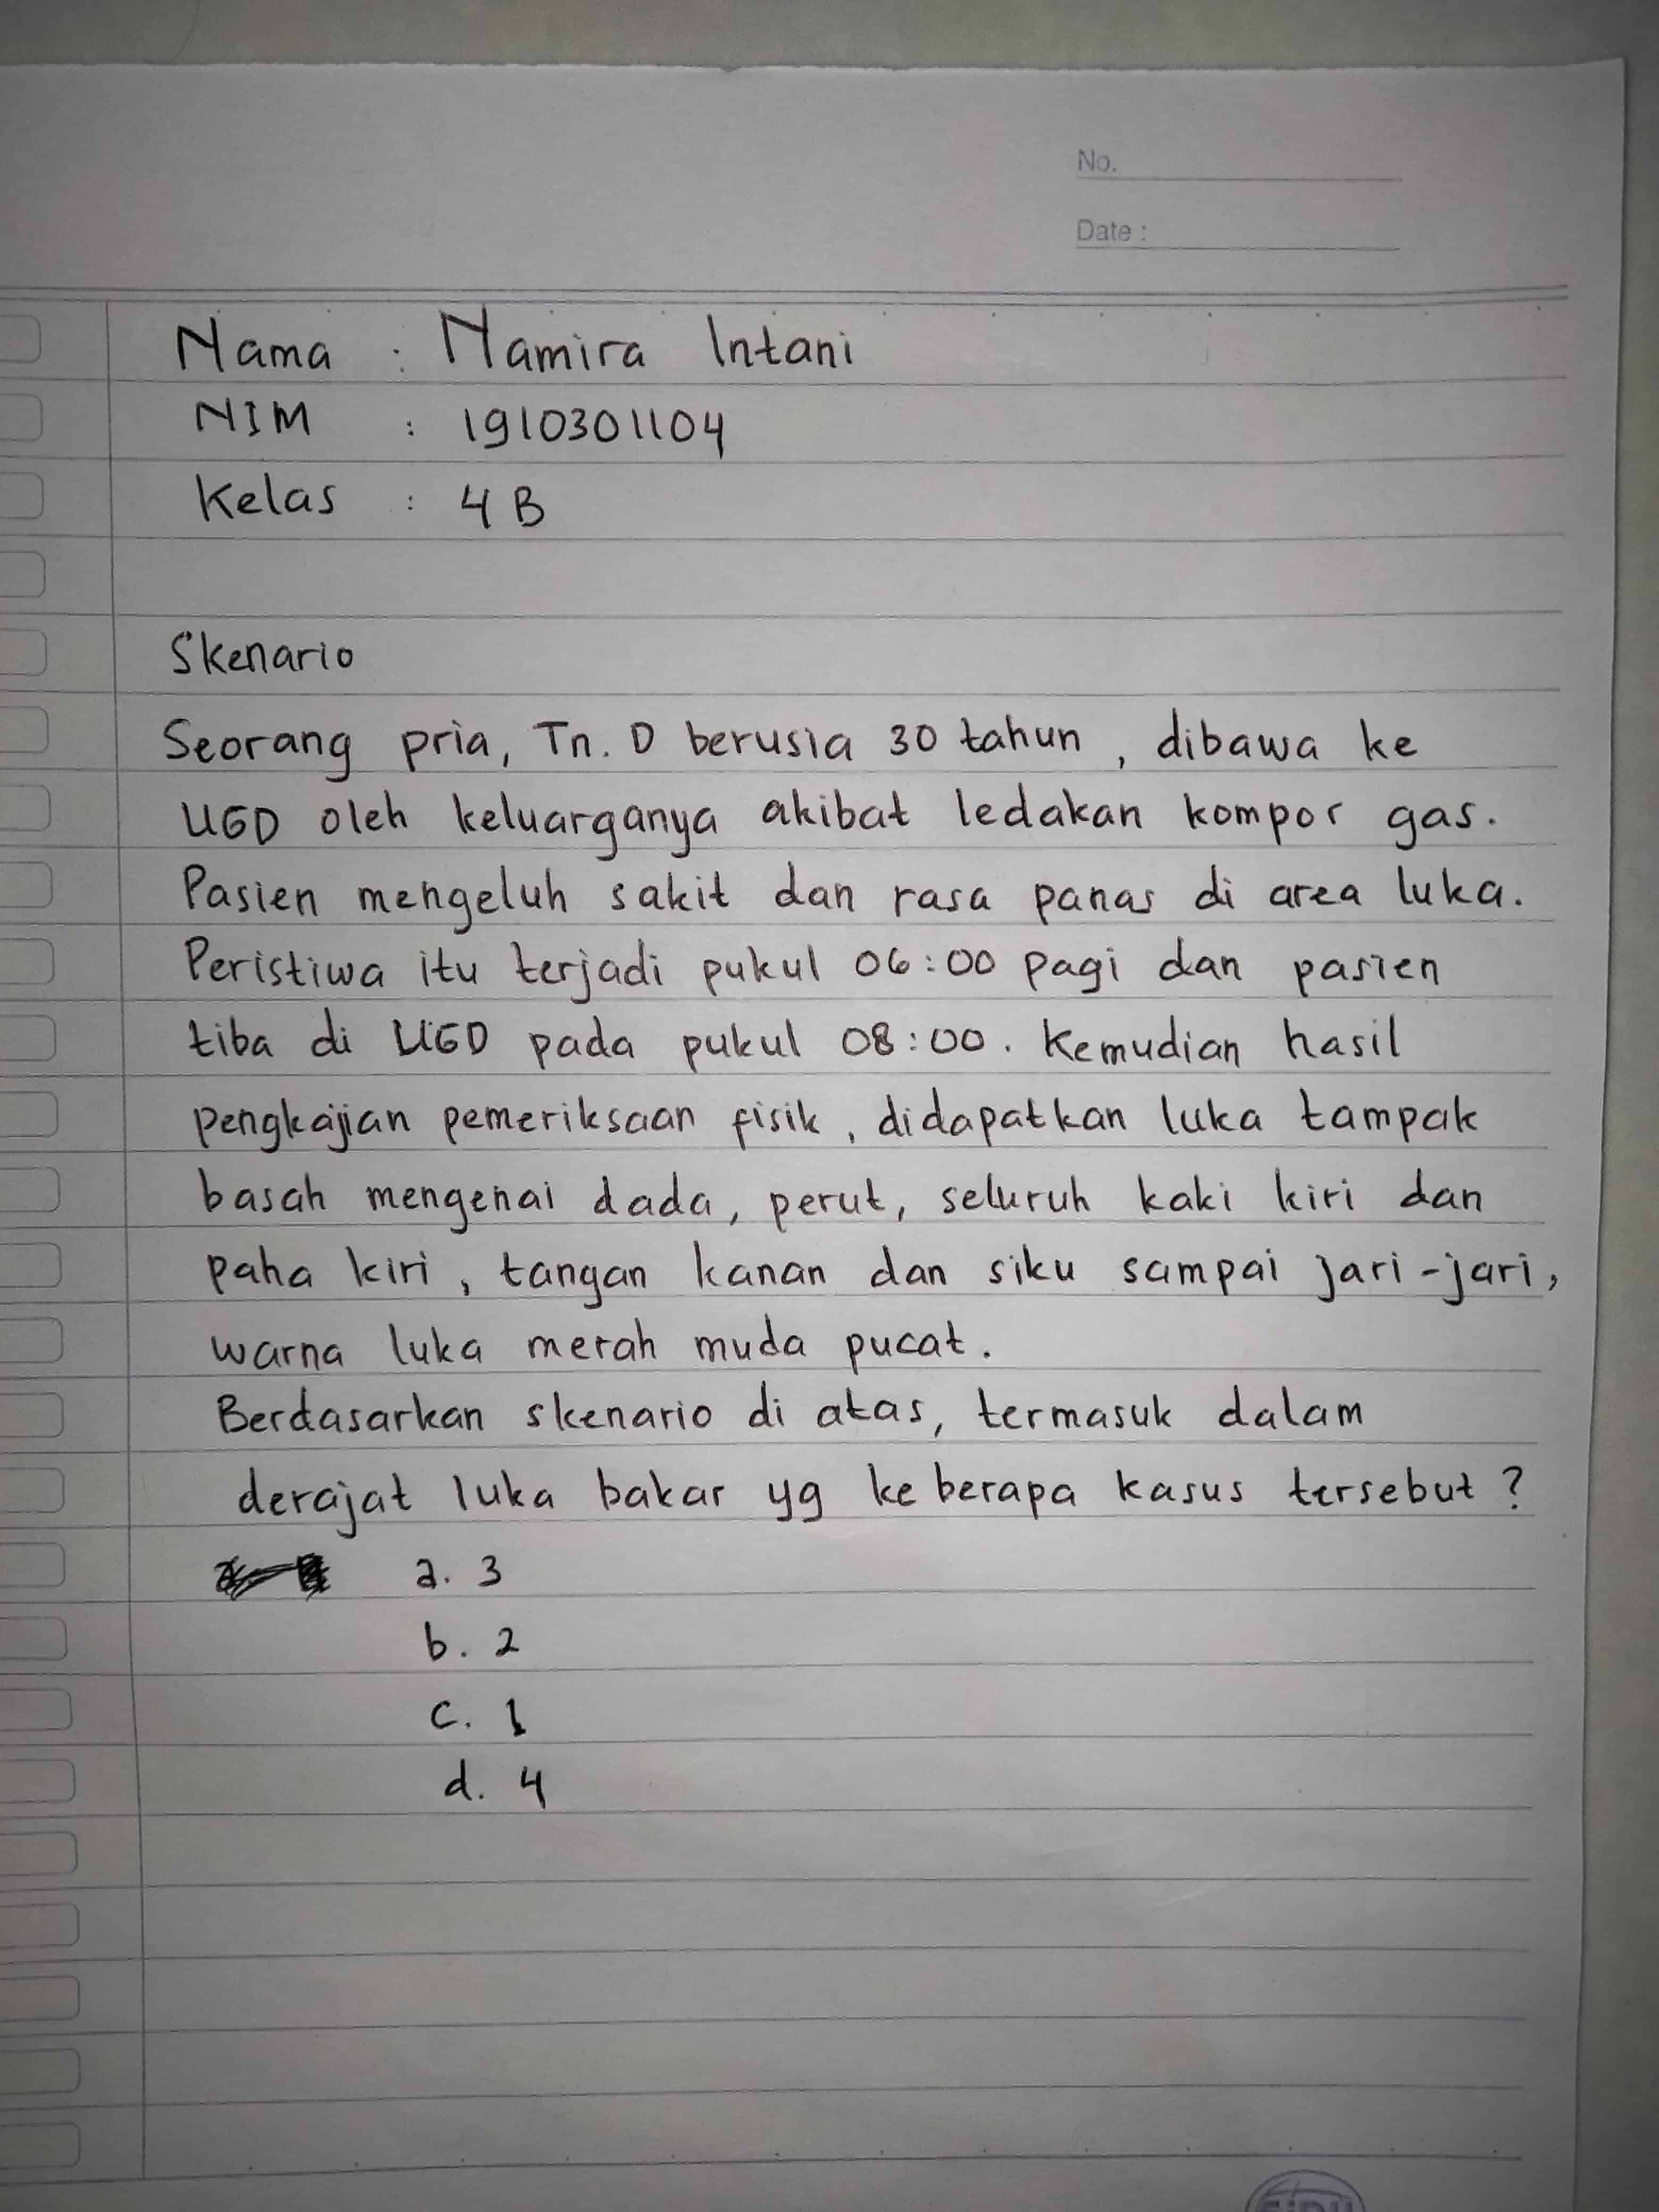 No.
Date :
Nama : Namira Intani
NIM : 1910301104
Kelas : 4 B
Skenario
Seorang pria, Tn. D berusia 30 tahun , dibawa ke
UGD oleh keluarganya akibat ledakan kompor gas.
Pasien mengeluh sakit dan rasa panas di area luka.
Peristiwa itu terjadi pukul 06:00 pagi dan pasien
tiba di UGD pada pukul 08:00. Kemudian hasil
pengkajian pemeriksaan fisik, didapatkan luka tampak
basah mengenai dada, perut, seluruh kaki kiri dan
paha kiri, tangan kanan dan siku sampai jari-jari,
warna luka merah muda pucat.
Berdasarkan skenario di atas, termasuk dalam
derajat luka bakar yg ke berapa kasus tersebut ?
a. 3
b. 2
c. 1
d. 4